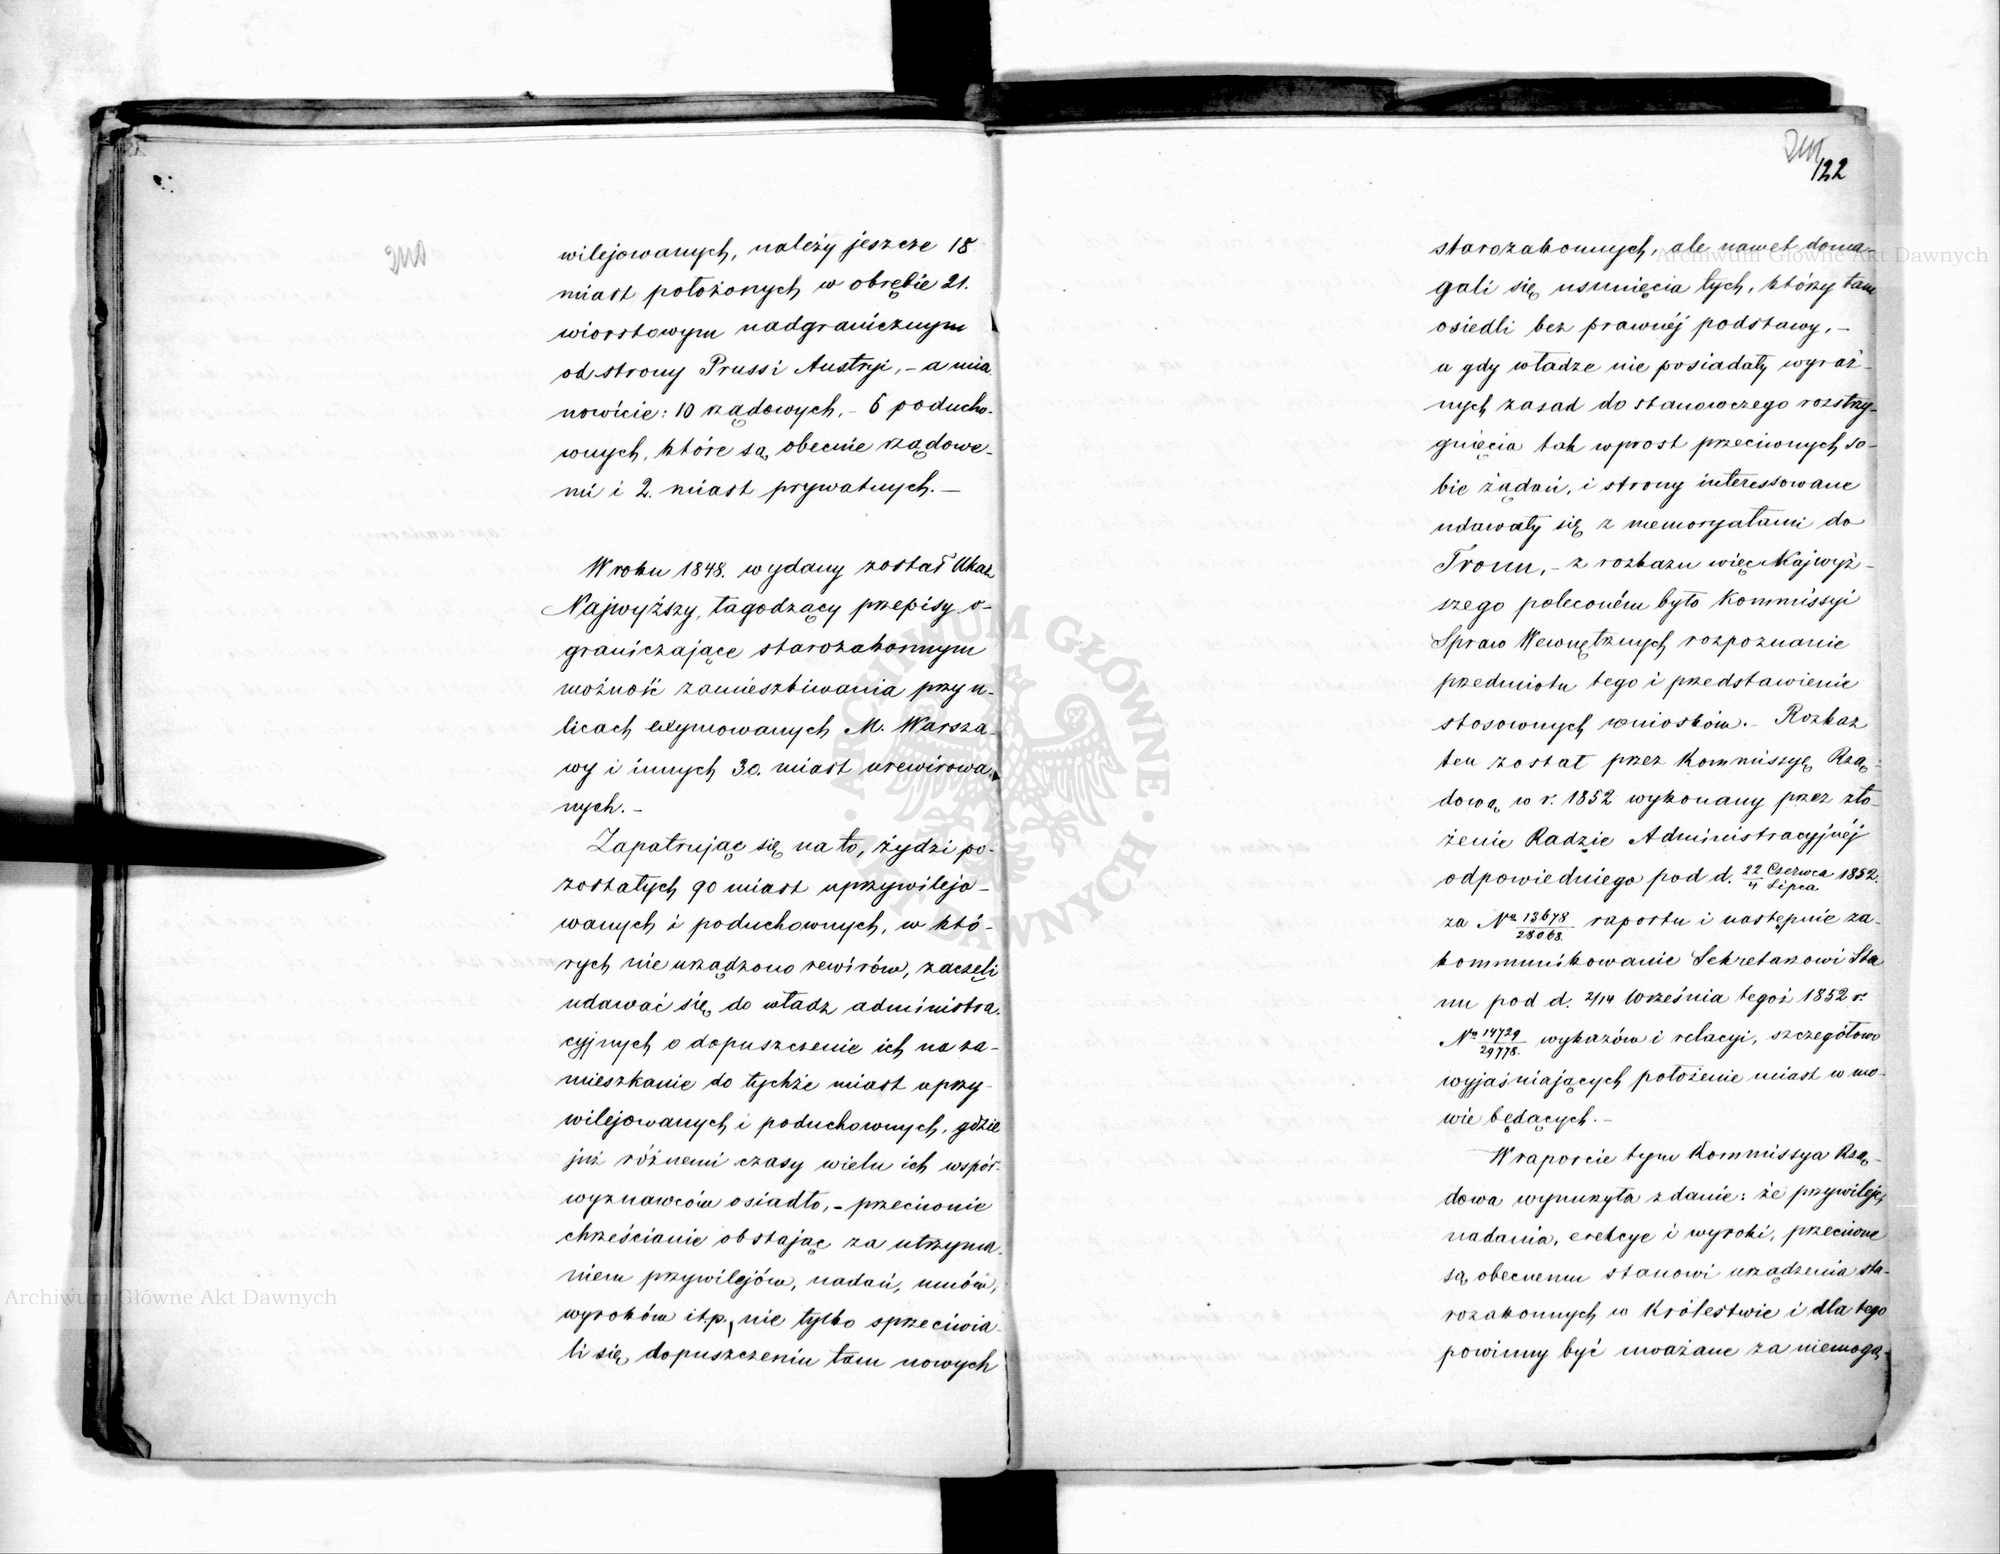 wilejowanych, należy jeszcze 18
miast położonych w obrębie 21.
wiorstowym nadgranicznym
od strony Pruss i Austryi, – a mia
nowicie: 10 rządowych, – 6 poducho-
wnych, które są obecnie rządowe-
mi i 2. miast prywatnych. –
W roku 1848. wydany został Ukaz
Najwyższy, łagodzący przepisy o-
graniczające starozakonnym
możność zamieszkiwania przy u-
licach exymowanych M. Warsza-
wy i innych 30. miast urewirowa-
nych. –
Zapatrując się na to, żydzi po-
zostałych 90 miast uprzywilejo-
wanych i poduchownych, w któ-
rych nie urządzono rewirów, zaczęli
udawać się do władz administra-
cyjnych o dopuszczenie ich na za-
mieszkanie do tychże miast uprzy-
wilejowanych i poduchownych, gdzie
już różnemi czasy wielu ich współ-
wyznawców osiadło, – przeciwnie
chrześcianie obstając za utrzyma-
niem przywilejów, nadań, umów,
wyroków itp., nie tylko sprzeciwia-
li się dopuszczeniu tam nowych
122
starozakonnych, ale nawet doma-
gali się usunięcia tych, którzy tam
osiedli bez prawnéj podstawy, –
a gdy władze nie posiadały wyraź-
nych zasad do stanowczego rozstrzy-
gnięcia tak wprost przeciwnych so-
bie żądań, i strony interessowane
udawały się z memoryałami do
Tronu, – z rozkazu więc Najwyż-
szego poleconém było Kommissyi
Spraw Wewnętrznych rozpoznanie
przedmiotu tego i przedstawienie
stosownych wniosków. – Rozkaz
ten został przez Kommissyę Rzą-
dową w r. 1852 wykonany przez zło-
żenie Radzie Administracyjnéj
odpowiedniego pod d. 22 Czerwca/4 Lipca 1852.
za No 13678/28068. raportu i następnie za-
kommunikowanie Sekretarzowi Sta
nu pod d. 2/14 Września tegoż 1852 r.
No 14729/29778. wykazów i relacyi, szczegółowo
wyjaśniających położenie miast w mo-
wie będących. –
W raporcie tym Kommissya Rzą-
dowa wynurzyła zdanie: że przywileje,
nadania, erekcye i wyroki, przeciwne
są obecnemu stanowi urządzenia sta-
rozakonnych w Królestwie i dla tego
powinny być uważane za niemogą-
Archiwum Główne Akt Dawnych
Archiwum Główne Akt Dawnych
ARCHIWUM GŁÓWNE AKT DAWNYCH